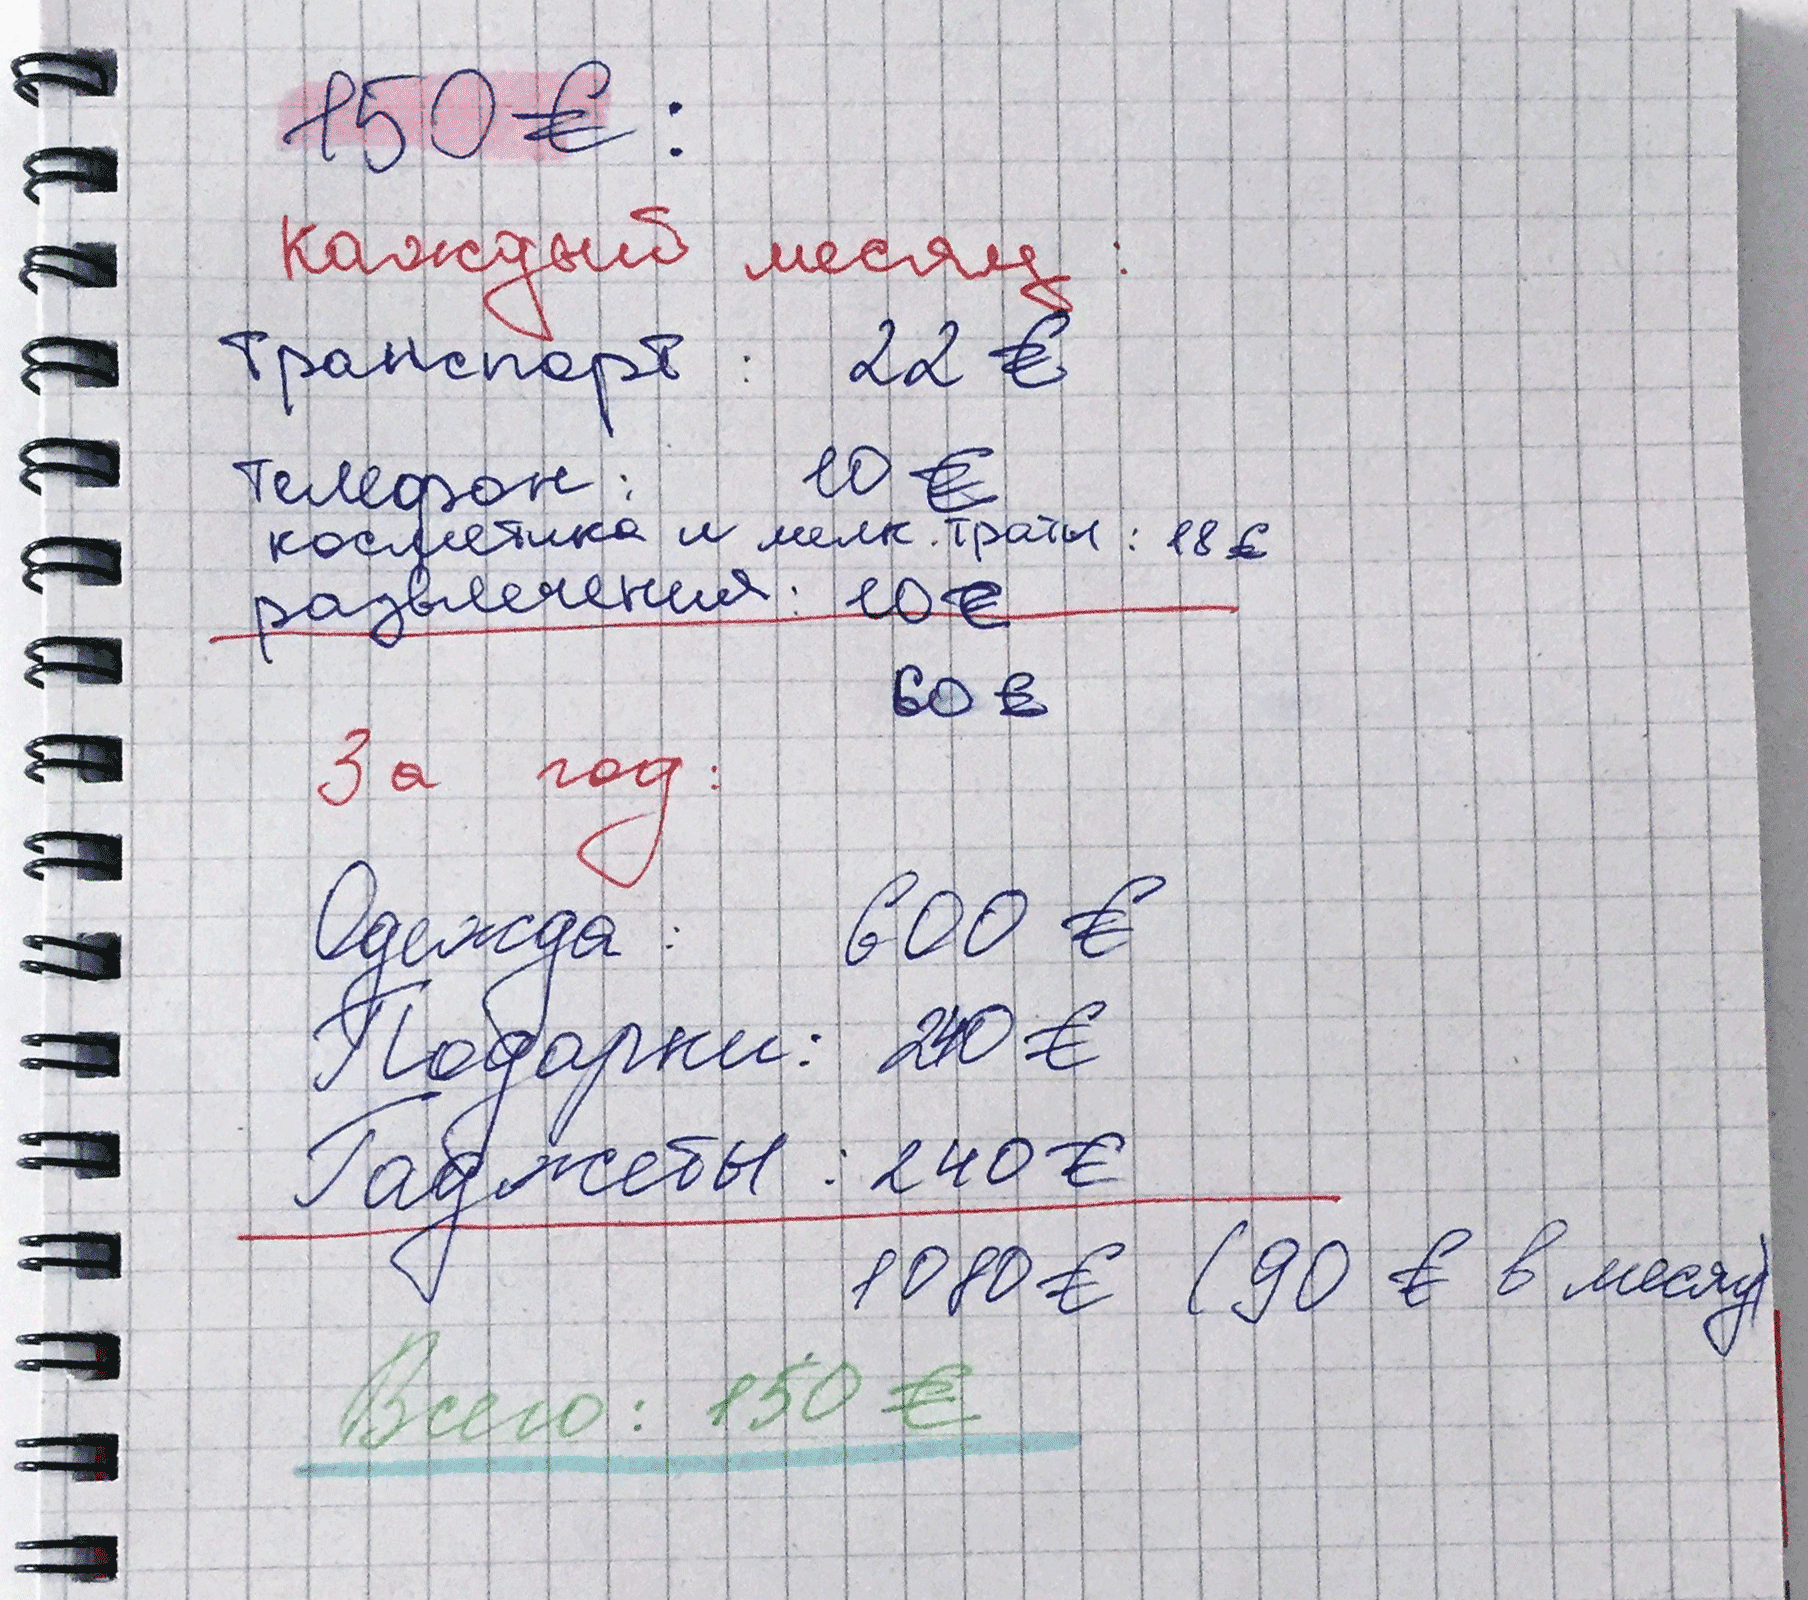 150 €:
Каждый месяц:
Транспорт: 22 €
Телефон: 10 €
косметика и мелк. траты: 18 €
развлечения: 10 €
60 €
За год:
Одежда: 600 €
Подарки: 240 €
Гаджеты: 240 €
1080 € (90 € в месяц)
Всего: 150 €